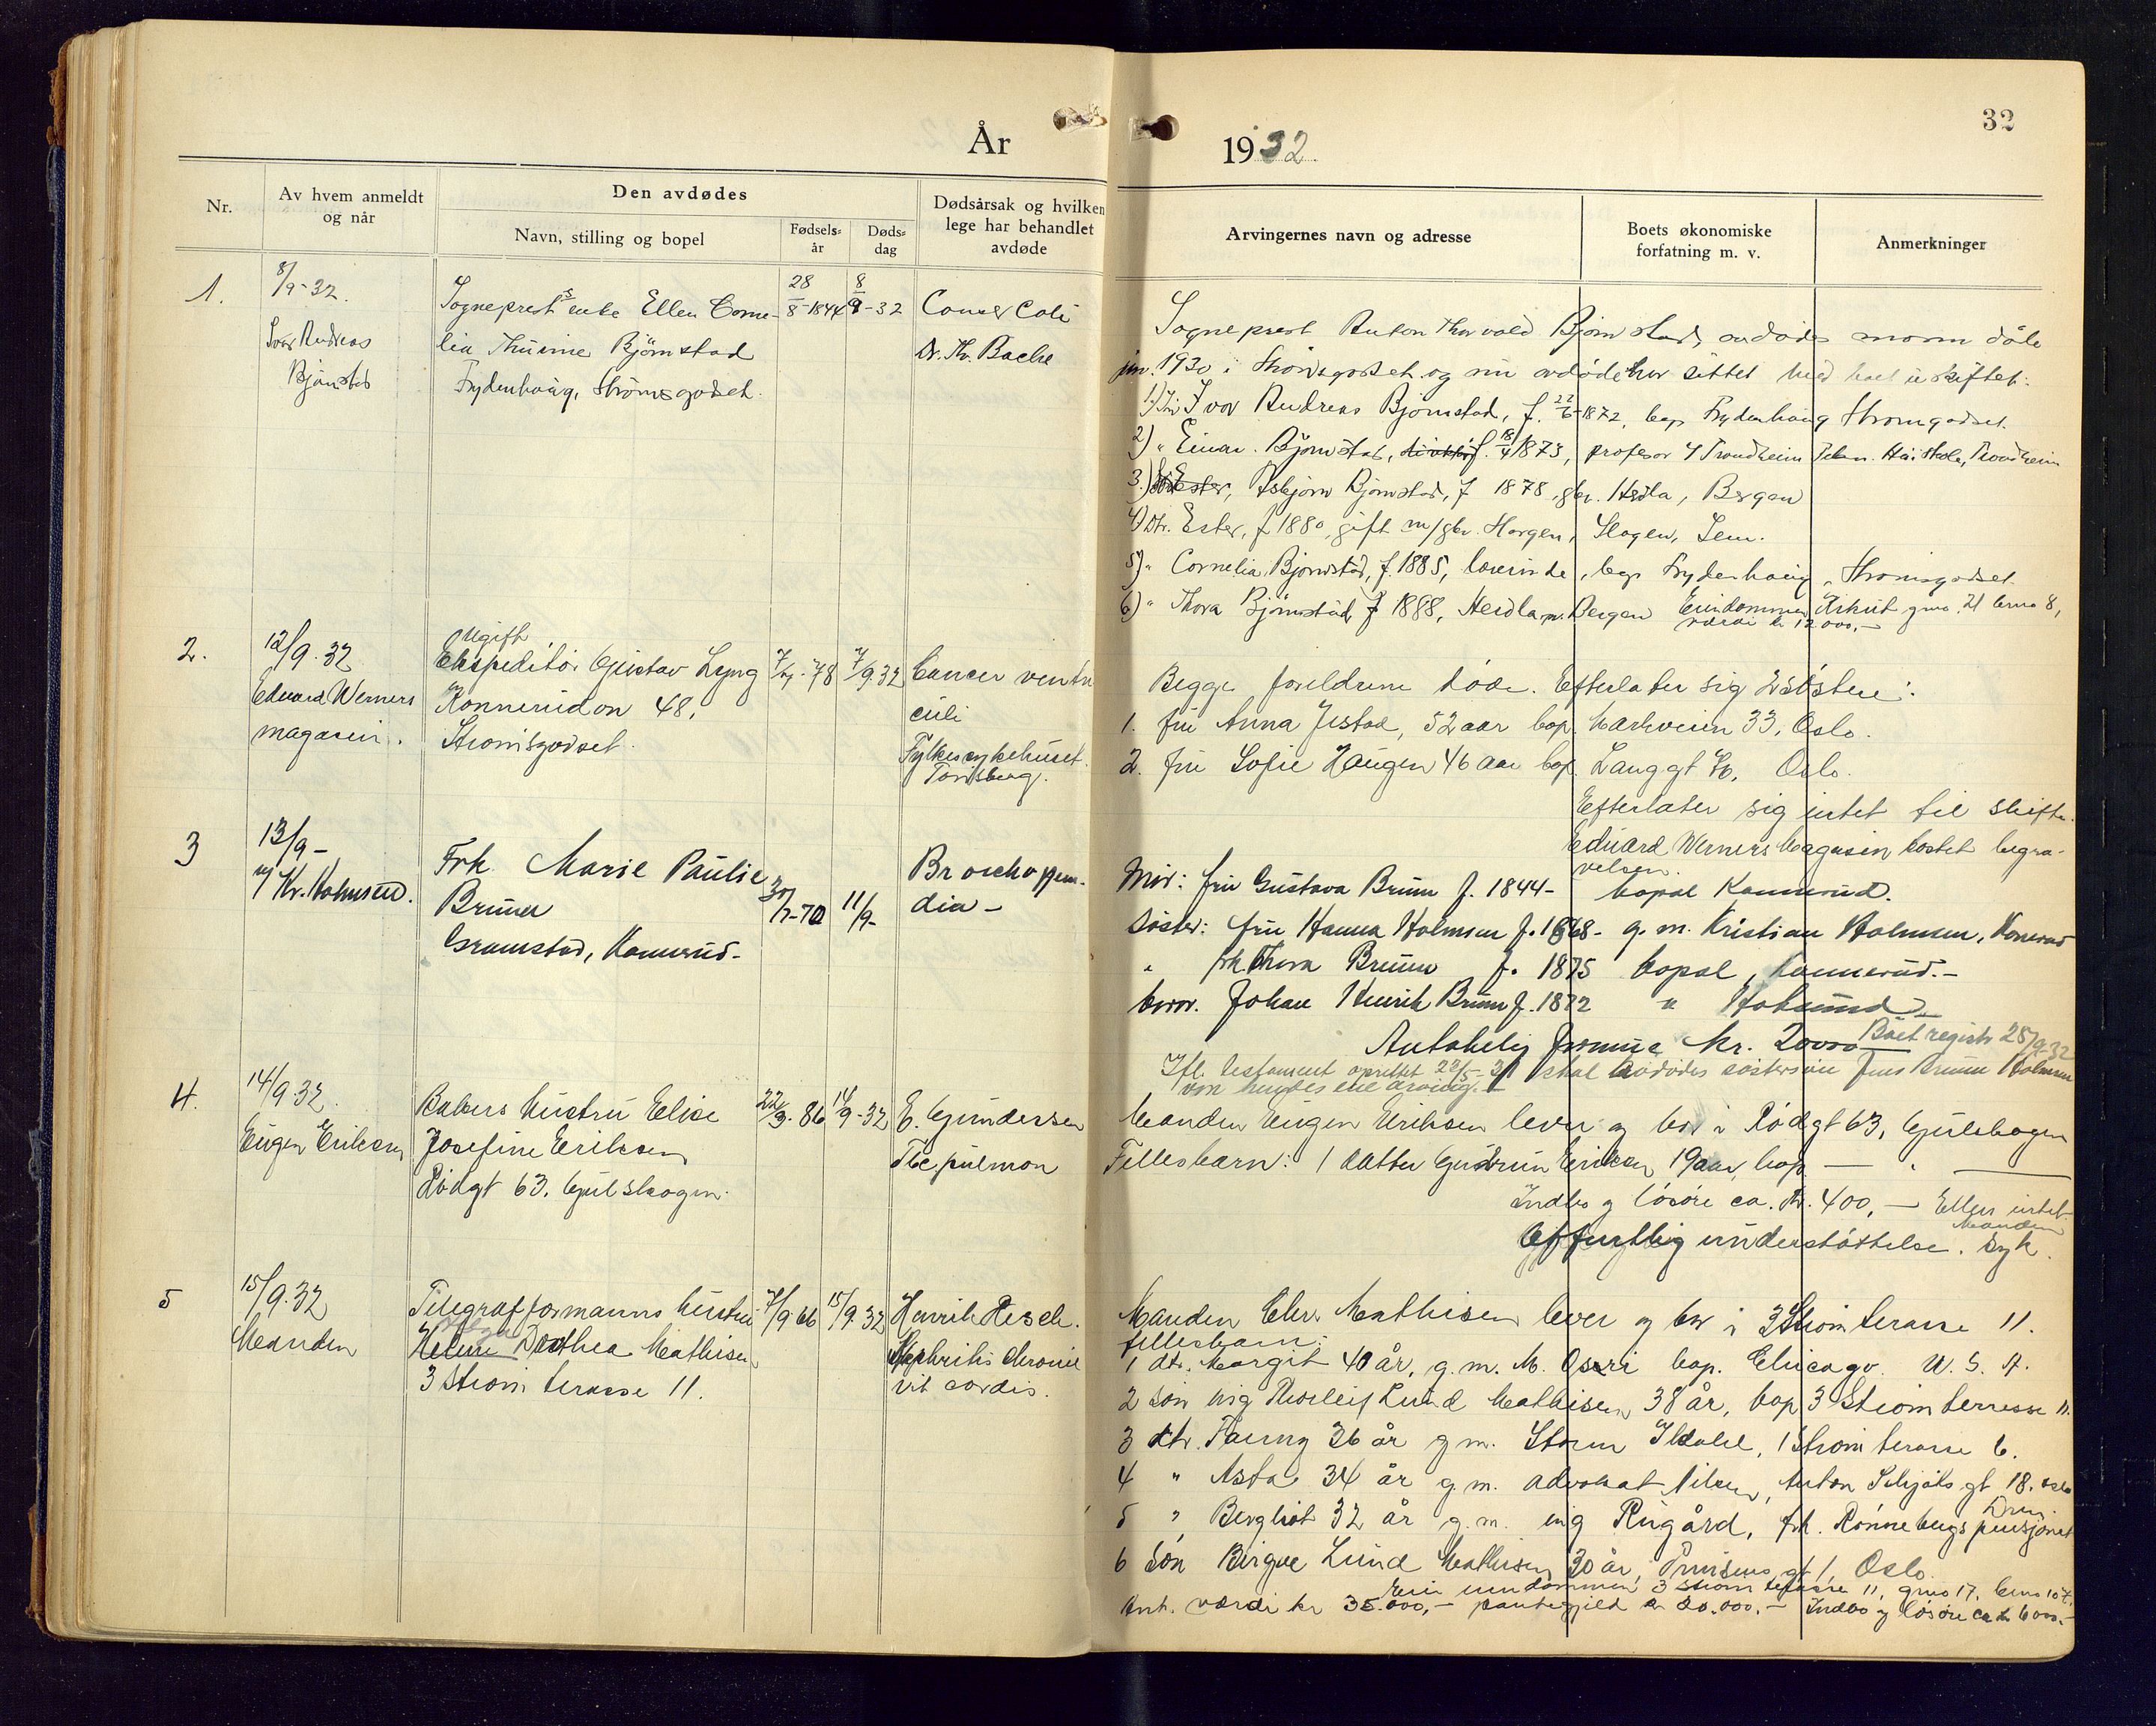 År
1932.
32
Nr.
Av hvem anmeldt
og når
Den avdødes
Navn, stilling og bopel
Fødsels-
år
Døds-
dag
Dødsårsak og hvilken
lege har behandlet
avdøde
Arvingernes navn og adresse
Boets økonomiske
forfatning m. v.
Anmerkninger
1.
8/9-32.
Ivar Andreas
Bjönstad
Sogneprests enke Ellen Corne-
lia Thinine Björnstad
Frydenhaug, Strömsgodset.
28/8-1844
8/9-32
Cancer Coli
Dr. Th. Bache
Sogneprest Anton Thorvald Björnstad, avdödes mann döde
jan. 1930 i Strömsgodset og nu avdöde har sittet med boet uskiftet:
1) Sön Ivar Andreas Björnstad, f. 22/6-1872, bop Frydenhaug Strömsgodset.
2) " Einar Björnstad, f. 18/4 1873, profesor v/ Trondheim Tekn. Höiskole, Trondheim
3.) Asbjörn Björnstad, f 1878, gbr. Herdla, Bergen
4) Dtr. Ester, f 1880, gift m/gbr. Horgen, Slagen, Sem.
5) " Cornelia Björnstad, f. 1885, lærerinde, bop Frydenhaug, Strömsgodset.
6) " Thora Björnstad, f 1888, Herdla pr. Bergen Eiendommen gno. 21 bno 8,
værdi kr 12000,-
2.
12/9.32
Eduard Werners
magasin.
Ugift
Ekspeditör Gustav Lyng
Konnerudvn 48,
Strömsgodset.
7/9.32
Cancer ventri
culi
Fylkessykehuset.
Tönsberg.
Begge foreldrene döde. Efterlater sig 2 söstre:
1. fru Anna Jestad, 52 aar bop. Markveien 33, Oslo.
2. fru Sofie Haugen 46 aar bop. Langgt Oslo.
Efterlater sig intet til skifte.
Eduard Werners Magasin kostet begra-
velsen.
3
13/9-
v/ Kr. Holmsen.
Frk Marie Pauline
Bruun
Gramstad, Konnerud.
30/7-70
11/9-
Bronchopneu-
dia-
Mor: fru Gustava Bruun f. 1844- bopæl Konnerud.
Söster: fru Hanna Holmsen f. 1868- g. m. Kristian Holmsen, Konnerud
" frk Thora Bruun f. 1875 bopæl, Konnerud.-
bror. Johan Henrik Bruun f. 1872 " Hokksund.
Antakelig formue kr. 20000
Boet registr 28/9-32
Ifl. testament oprettet skal avdödes söstersön Jens Bruun Holmsen
være hendes ene arving.
4.
14/9.32.
Eugen Eriksen
Bakers hustru Elise
Josefine Eriksen
Rödgt 63. Gulskogen.
22/3.86
14/9-32
E. Gundersen
Tbc, pulmon
Manden Eugen Eriksen lever og bor i Rödgt 63, Gulskogen
Fellesbarn: 1 datter Gudrun Eriksen 19 aar, bop — " —
Indbo og lösöre ca. kr. 400,— Ellers intet
Offentlig understöttelse. Manden syk.
5
15/9.32
Manden
Telegrafformanns hustru
Helene Dorthea Mathisen
3 Ström terasse 11.
7/9.66
15/9.32
Henrik Resch.
Nephritis chronic
Vit cordis.
Manden Chr. Mathisen lever og bor i 3 Ström terasse 11.
fellesbarn:
1 dtr. Margit 40 år, g. m. M. Oseri bop. Chicago. U. S. A.
2 sön ing Thorleif Lund Mathisen 38 år, bop 3 Ström terrasse 11.
3 dtr. Fanny 36 år g m. Storm Ildahl, 1 Ström terasse 6.
4 " Asta 34 år g. m. advokat Nilsen, Anton Schjöts gt 18. Oslo
5 " Bergliot 32 år g. m. ing Rugård, frk. Rönnebergs pensjonat Drm.
6 Sön Birger Lund Mathisen 30 år, gt 1, Oslo.
Eier eiendommen 3 Ström terasse 11, gno 17, bno 107.
Ant. værdi kr 35.000,- pantegjeld kr 20.000.- Indbo og lösöre ca kr 6000.-